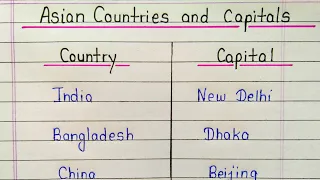 Asian Countries and Capitals
Country Capital
India New Delhi
Bangladesh Dhaka
China Beijing